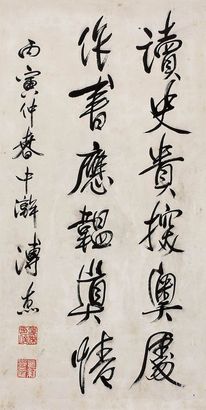 讀史貴探奧處
作書應韞真情
丙寅仲春中澣 溥杰